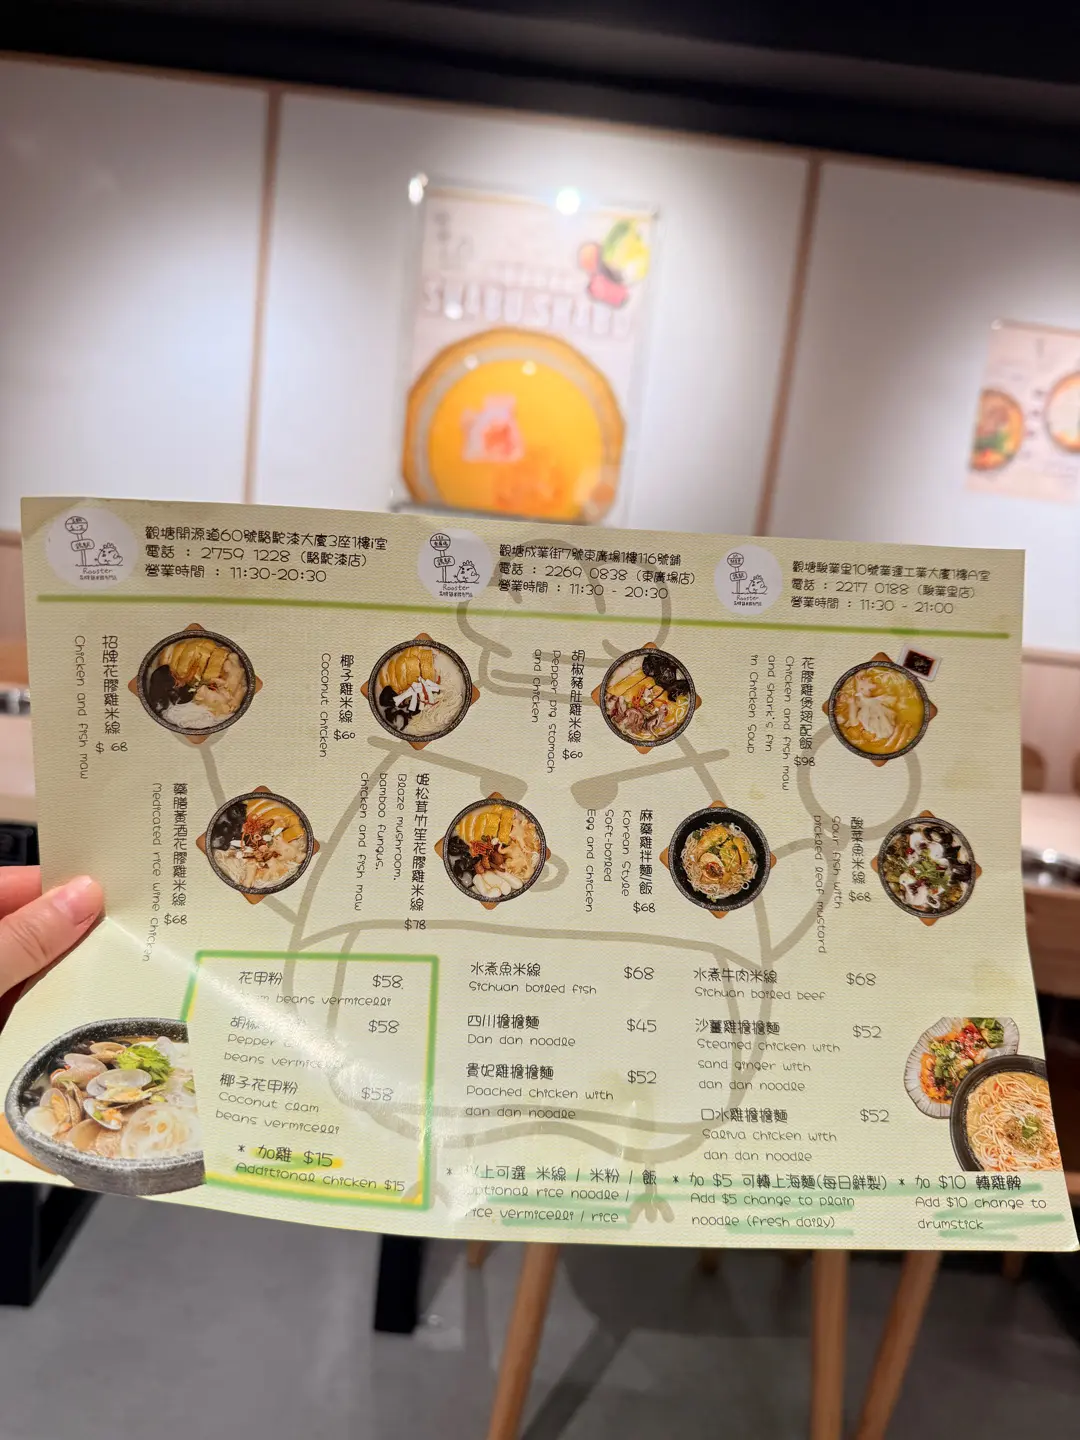 SHABU SHABU
Rooster
觀塘開源道60號駱駝漆大廈3座1樓I室
電話 : 2759 1228 (駱駝漆店)
營業時間 : 11:30-20:30
Rooster
觀塘成業街7號東廣場1樓116號鋪
電話 : 2269 0838 (東廣場店)
營業時間 : 11:30 - 20:30
Rooster
觀塘駿業里10號業運工業大廈1樓A室
電話 : 2217 0188 (駿業里店)
營業時間 : 11:30 - 21:00
招牌花膠雞米線
$ 68
Chicken and fish maw
椰子雞米線
$60
Coconut chicken
胡椒豬肚雞米線
$60
Pepper pig stomach
and chicken
花膠雞煲翅配飯
$98
Chicken and fish maw
and shark's fin
in chicken soup
藥膳黃酒花膠雞米線
$68
Medicated rice wine chicken
姬松茸竹笙花膠雞米線
$78
Blaze mushroom.
bamboo fungus.
chicken and fish maw
麻藥雞拌麵/飯
$68
Korean Style
Soft-boiled
Egg and chicken
酸菜魚米線
$68
Sour fish with
pickled leaf mustard
花甲粉 $58.
beans vermicelli
胡椒 $58
Pepper
beans vermicelli
椰子花甲粉 $58
Coconut clam
beans vermicelli
* 加雞 $15
Additional chicken $15
水煮魚米線 $68
Sichuan boiled fish
四川擔擔麵 $45
Dan dan noodle
貴妃雞擔擔麵 $52
Poached chicken with
dan dan noodle
水煮牛肉米線 $68
Sichuan boiled beef
沙薑雞擔擔麵 $52
Steamed chicken with
sand ginger with
dan dan noodle
口水雞擔擔麵 $52
Saliva chicken with
dan dan noodle
* 以上可選 米線 / 米粉 / 飯
Optional rice noodle /
rice vermicelli / rice
* 加 $5 可轉上海麵(每日鮮製)
Add $5 change to plain
noodle (fresh daily)
* 加 $10 轉雞髀
Add $10 change to
drumstick